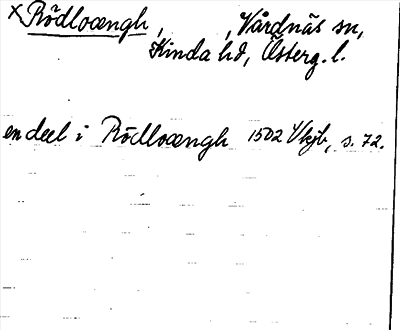 × Rödloængh, , Vårdnäs sn,
Kinda hd, Österg. l.
en deel i Rödloængh 1502 Vkjb, s. 72.